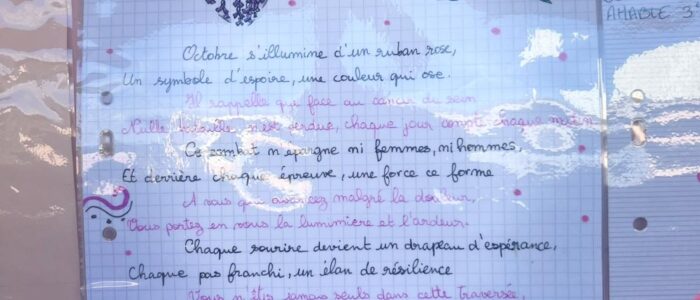 AHABLE 3
Octobre s'illumine d'un ruban rose,
Un symbole d'espoire, une couleur qui ose.
Il rappelle que face au cancer du sein
Nulle bataille n'est perdue, chaque jour compte chaque matin
Ce combat n'epargne ni femmes, ni hommes,
Et derrière chaque épreuve, une force ce forme
A vous qui avancez malgré la douleur,
Vous portez en vous la lumumiere et l'ardeur.
Chaque sourire devient un drapeau d'espérance,
Chaque pas franchi, un élan de résilience
Vous n'êtes jamais seuls dans cette traversée,